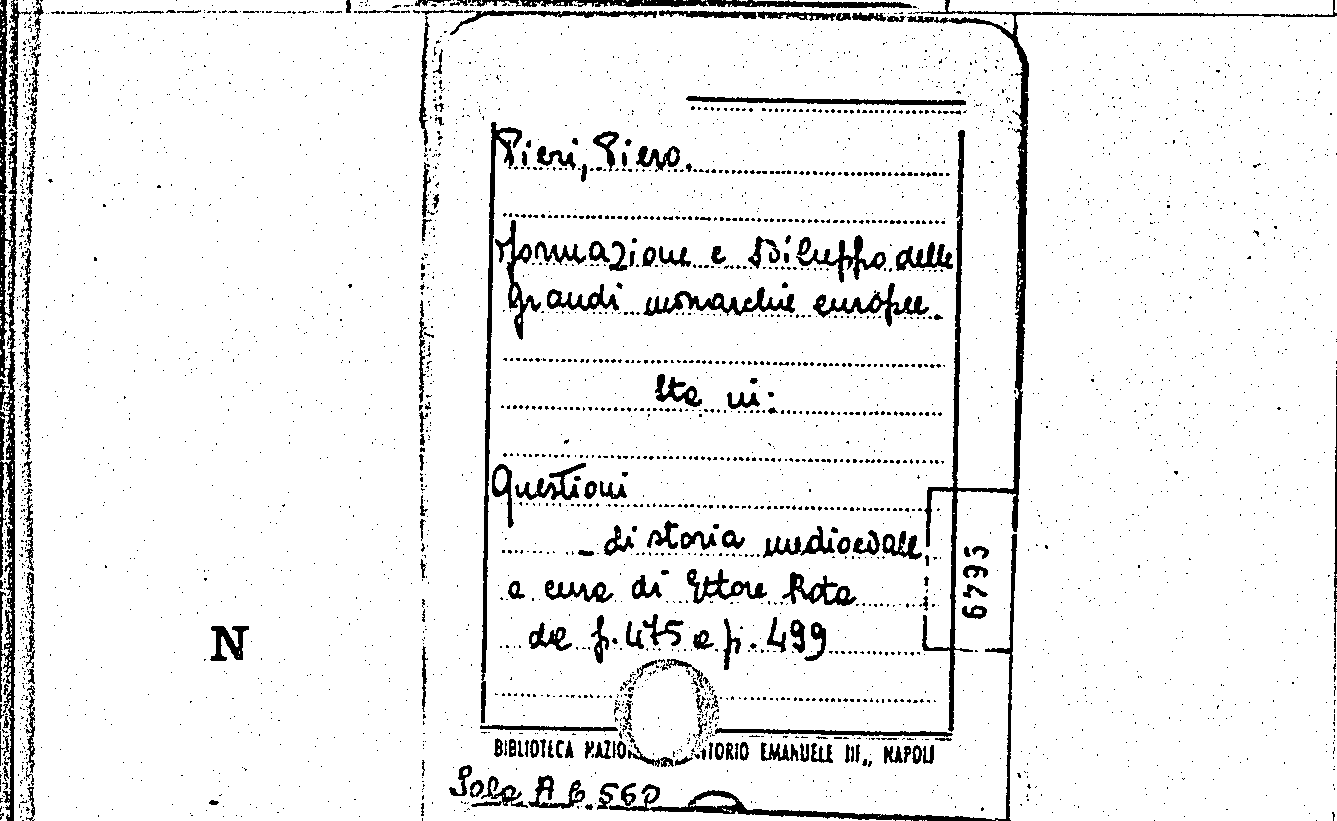 Pieri, Piero.
Formazione e sviluppo delle
grandi monarchie europee.
Sta in:
Questioni
_ di storia medioevale
a cura di Ettore Rota
da p. 475 a p. 499
6795
N
BIBLIOTECA NAZIO TORIO EMANUELE III„ NAPOLI
Sala A 6 560